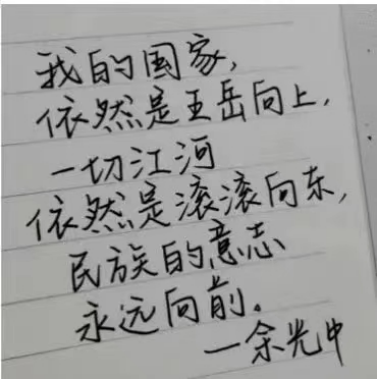 我的国家,
依然是王岳向上,
一切江河
依然是滚滚向东,
民族的意志
永远向前。
一余光中